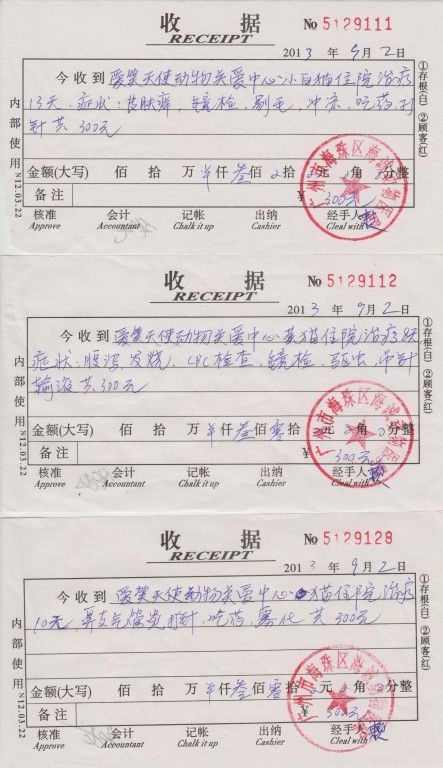 收据
№ 5129111
RECEIPT
2013 年 9 月 2 日
今收到 爱婴天使动物关爱中心小白猫住院治疗
13天，症状：皮肤癣，镜检，刷毛，冲凉，吃药，打
针共300元
①存根(白) ②顾客(红)
内部使用 N12.03.22
金额(大写) 佰 拾 万 仟 叁 佰 拾 元 角 分整
备注 ¥ 300元
核准 会计 记帐 出纳 经手人
Approve Accountant Chalk it up Cashier Cleal with
广州市海珠区海
收据
№ 5129112
RECEIPT
2013 年 9 月 2 日
今收到 爱婴天使动物关爱中心黄猫住院治疗
症状：腹泻，发烧，CBC检查，镜检，驱虫，
输液共300元
①存根(白) ②顾客(红)
内部使用 N12.03.22
金额(大写) 佰 拾 万 仟 叁 佰 零 拾 元 角 分整
备注 ¥ 300元
核准 会计 记帐 出纳 经手人
Approve Accountant Chalk it up Cashier Cleal with
广州市海珠区海
收据
№ 5129128
RECEIPT
2013 年 9 月 2 日
今收到 爱婴天使动物关爱中心 猫住院治疗
10天，鼻支气管炎打针，吃药，雾化 共 300元
①存根(白) ②顾客(红)
内部使用 N12.03.22
金额(大写) 佰 拾 万 仟 叁 佰 零 拾 元 角 分整
备注 ¥ 300元
核准 会计 记帐 出纳 经手人
Approve Accountant Chalk it up Cashier Cleal with
广州市海珠区海